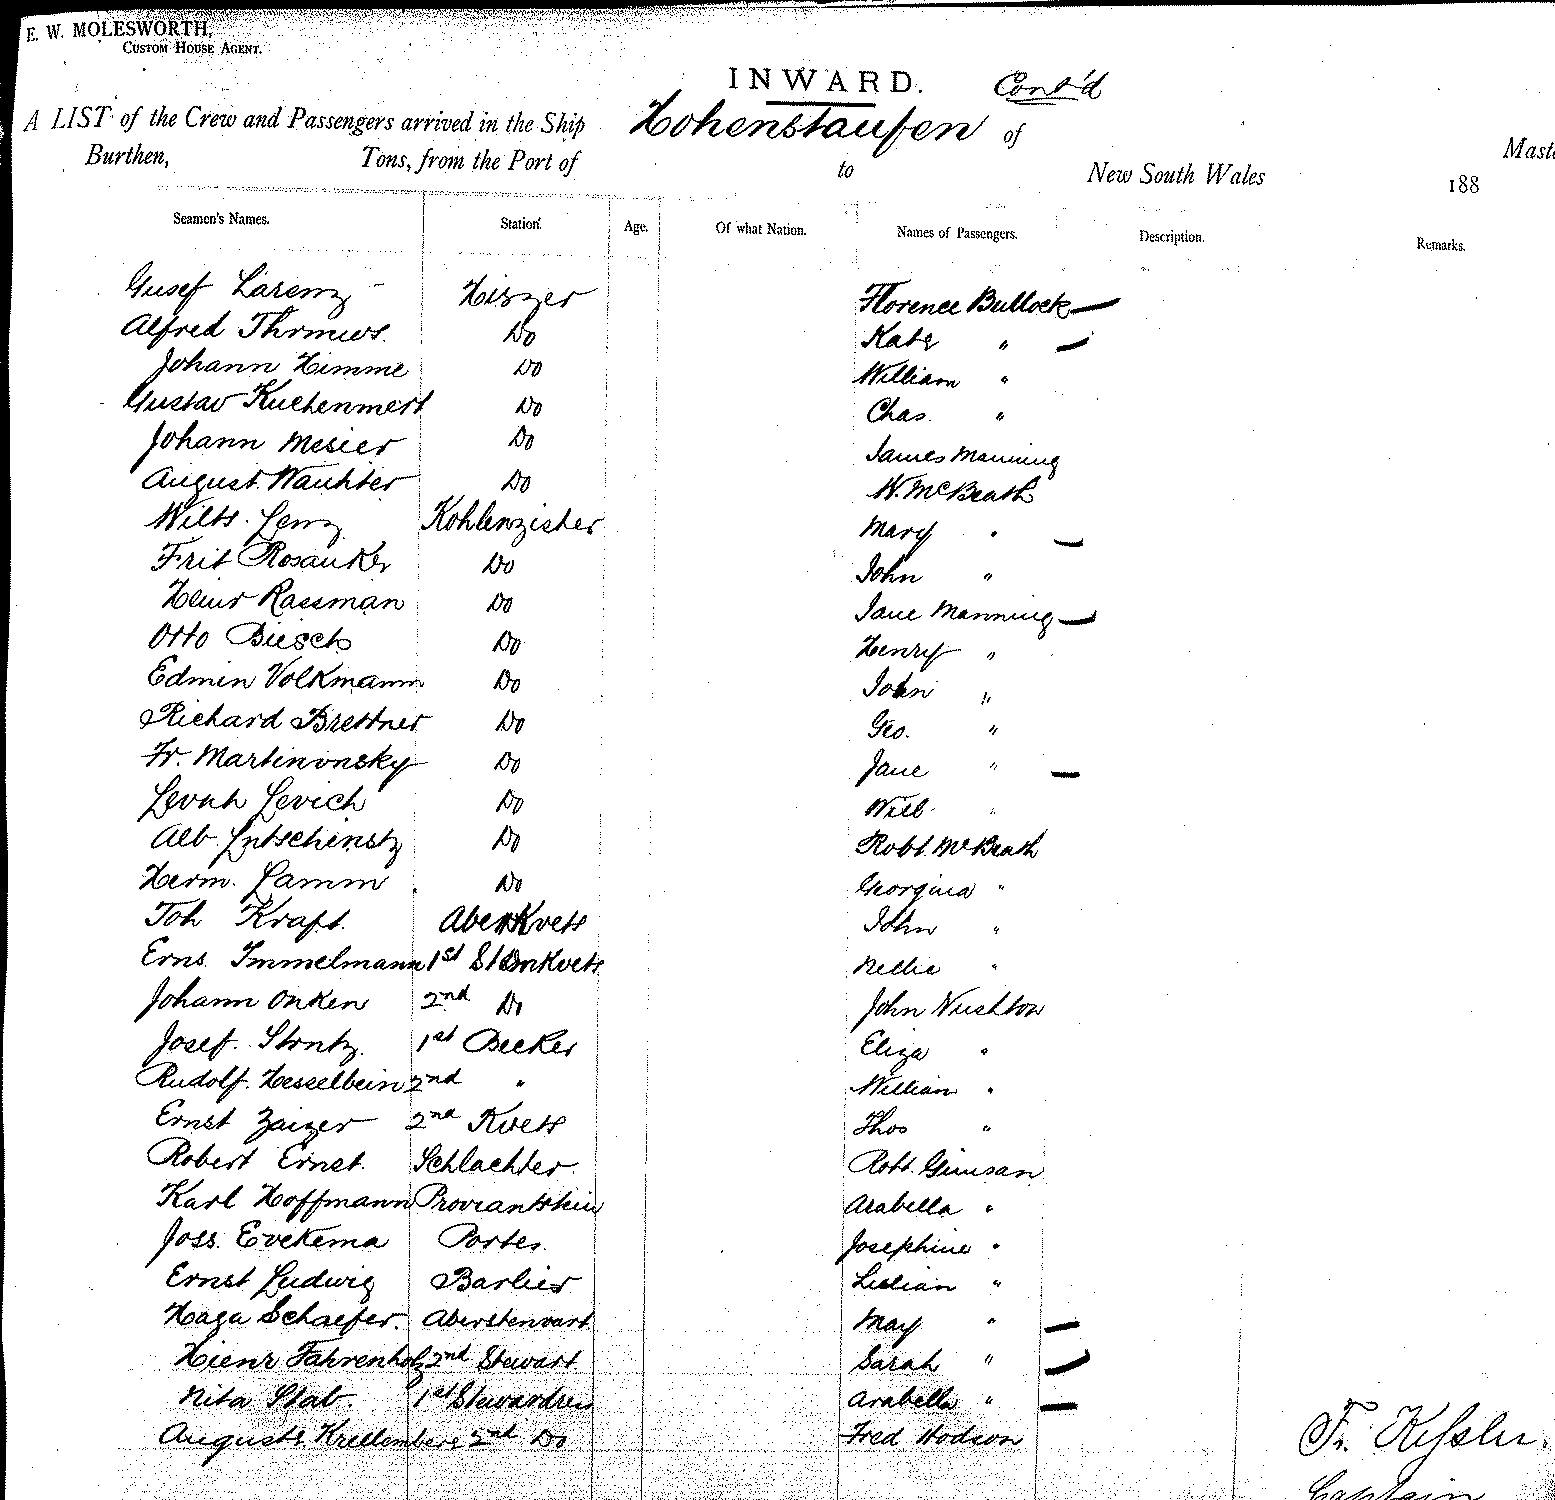 E. W. MOLESWORTH,
CUSTOM HOUSE AGENT.
INWARD. Cont'd
A LIST of the Crew and Passengers arrived in the Ship Hohenstaufen of Maste
Burthen, Tons, from the Port of to New South Wales 188
Seamen's Names. Station. Age. Of what Nation. Names of Passengers. Description. Remarks.
Gusef Larenz Hiszer Florence Bullock
Alfred Do Kate "
Johann Himme Do William "
Gustav Kuchenmert Do Chas. "
Johann Mesier Do James Manning
August Wauhter Do W. McBeath
Lenz Kohlenzisher Mary "
Frit Rosauker Do John "
Heinr Rassman Do Jane Manning
Otto Do Henry "
Edmin Volkmann Do John "
Richard Brettner Do Geo. "
Fr. Martinonsky Do Jane "
Levah Levich Do Will "
Alb. Do Robt. McBeath
Herm. Lamm Do Georgina "
Joh Kraft. John "
Erns. Immelmann 1st Nellie "
Johann Onken 2nd Do John
Josef. 1st Becker Eliza "
Rudolf. Hesselbein 2nd " William "
Ernst Zaizer 2nd Kvets Thos "
Robert Ernst. Schlachter Robt.
Karl Hoffmann Arabella "
Joss. Evekema Porter. Josephine "
Ernst Ludwig Barlier Lilian "
Haga Schaefer. Aberstenvart. May "
Hienr Fahrenholz 2nd Stewart. Sarah "
Nita Stab. 1st Stewardress Arabella "
Auguste 2nd Do Fred Hodson
Fr. Kessler.
Captain